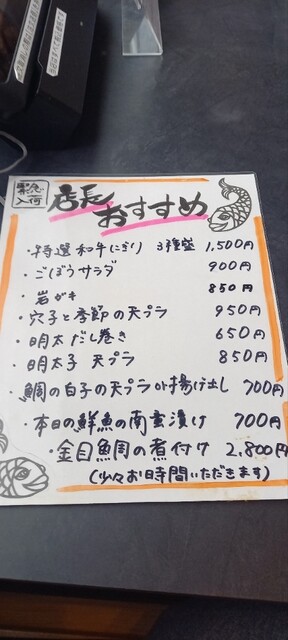 緊急
入荷
店長
おすすめ
・特選 和牛にぎり 3種盛 1,500円
・ごぼうサラダ 900円
・岩ガキ 850円
・穴子と季節の天プラ 950円
・明太だし巻き 650円
・明太子 天プラ 850円
・鯛の白子の天プラor揚げ出し 700円
・本日の鮮魚の南蛮漬け 700円
・金目鯛の煮付け 2,800円
(少々お時間いただきます)